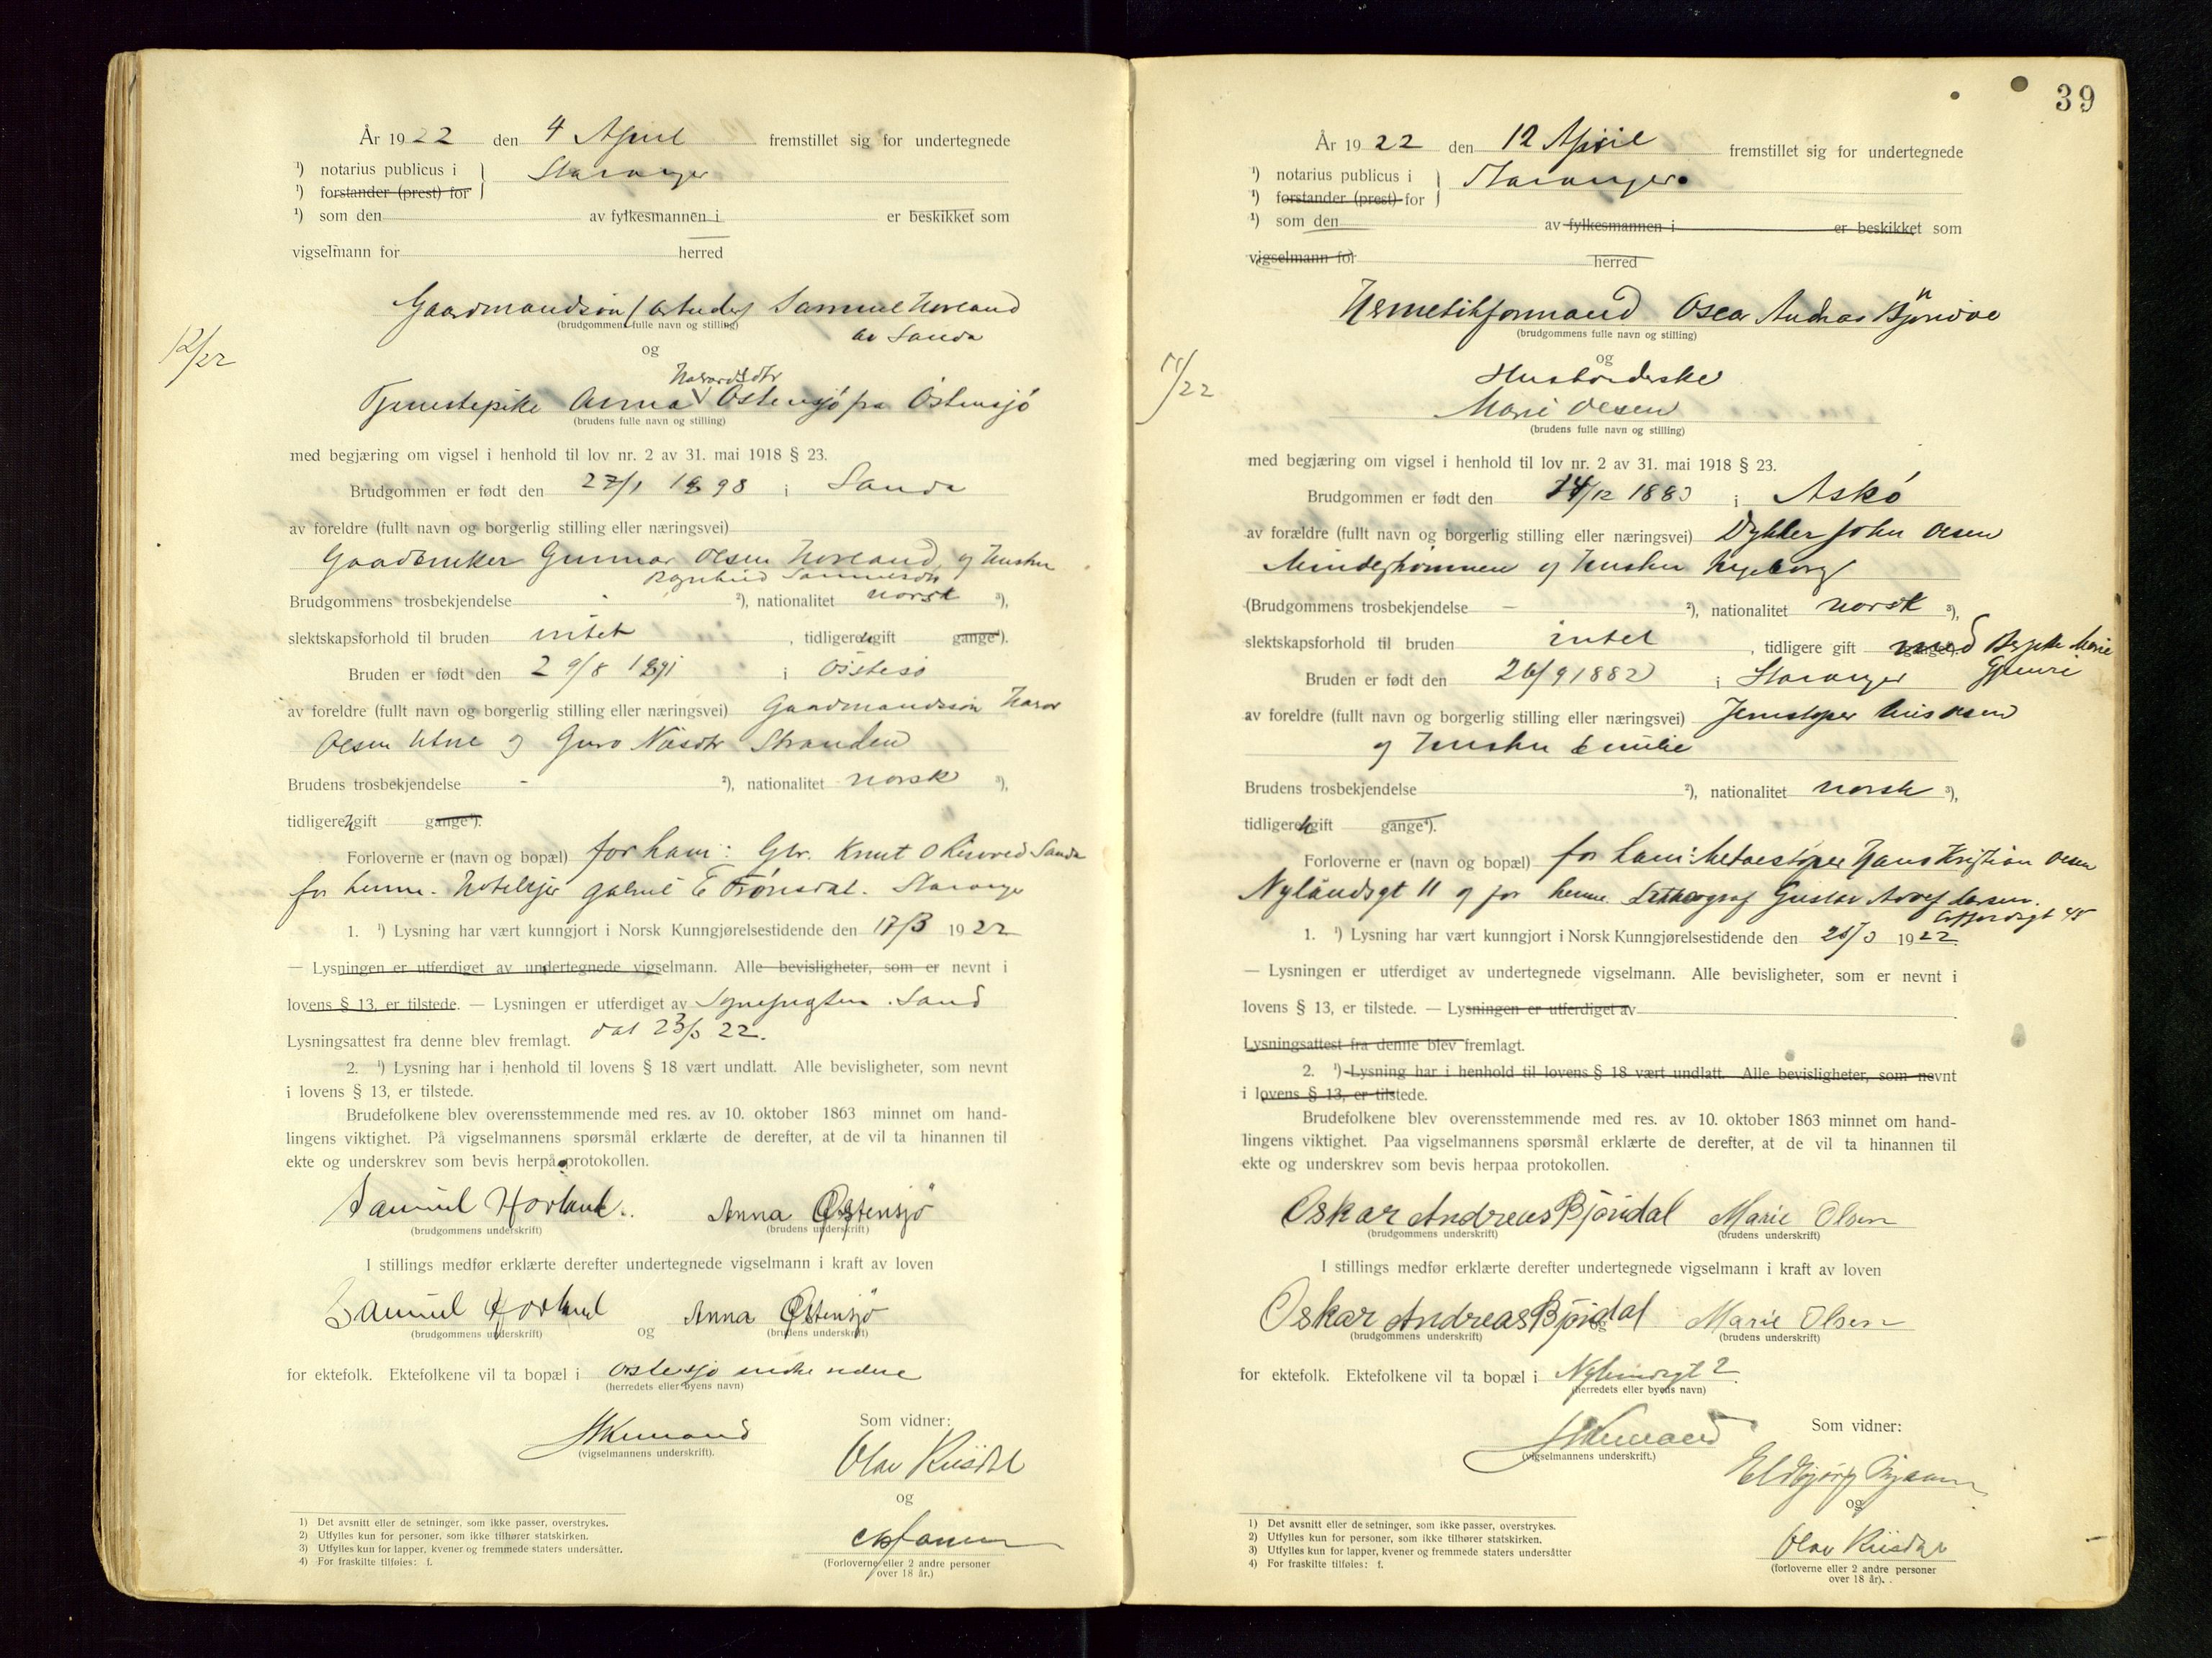 År 1922 den 4 April fremstillet sig for undertegnede
¹) notarius publicus i } Stavanger
¹) forstander (prest) for
¹) som den av fylkesmannen i er beskikket som
vigselmann for herred
12/22
Gaardmandssøn / arbeider Samuel Hovland
(brudgommens fulle navn og stilling)
av Sauda
og
Havardsdtr
Tjenestepike Anna Östensjö fra Östensjö
(brudens fulle navn og stilling)
med begjæring om vigsel i henhold til lov nr. 2 av 31. mai 1918 § 23.
Brudgommen er født den 27/1 1898 i Sauda
av foreldre (fullt navn og borgerlig stilling eller næringsvei)
Gaardbruker Gunnar Olsen Hovland og hustru
Ragnhild
Brudgommens trosbekjendelse - ²), nationalitet norsk ³),
slektskapsforhold til bruden intet , tidligere gift gange⁴).
Bruden er født den 29/8 1891 i
av foreldre (fullt navn og borgerlig stilling eller næringsvei) Gaardmandssøn Havar
Olsen Utne og Guro Nilsdtr Stranden
Brudens trosbekjendelse - ²), nationalitet norsk ³),
tidligere gift gange⁴).
Forloverne er (navn og bopæl) for ham: Gbr. Knut O Sauda
for henne. Hotelejer Gabriel E Trönsdal. Stavanger
1. ¹) Lysning har vært kunngjort i Norsk Kunngjørelsestidende den 17/3 1922
— Lysningen er utferdiget av undertegnede vigselmann. Alle bevisligheter, som er nevnt i
lovens § 13, er tilstede. — Lysningen er utferdiget av Sognepresten. Sand
Lysningsattest fra denne blev fremlagt. dat 23/3 22.
2. ¹) Lysning har i henhold til lovens § 18 vært undlatt. Alle bevisligheter, som nevnt
i lovens § 13, er tilstede.
Brudefolkene blev overensstemmende med res. av 10. oktober 1863 minnet om hand-
lingens viktighet. På vigselmannens spørsmål erklærte de derefter, at de vil ta hinannen til
ekte og underskrev som bevis herpå protokollen.
Samuel Hovland. Anna Østensjö
(brudgommens underskrift) (brudens underskrift)
I stillings medfør erklærte derefter undertegnede vigselmann i kraft av loven
Samuel Hovland og Anna Østensjö
(brudgommens underskrift) (brudens underskrift)
for ektefolk. Ektefolkene vil ta bopæl i
(herredets eller byens navn)
(vigselmannens underskrift).
Som vidner:
Olav Riisdal
og
(Forloverne eller 2 andre personer
over 18 år.)
1) Det avsnitt eller de setninger, som ikke passer, overstrykes.
2) Utfylles kun for personer, som ikke tilhører statskirken.
3) Utfylles kun for lapper, kvener og fremmede staters undersåtter.
4) For fraskilte tilføies: f.
39
År 1922 den 12 April fremstillet sig for undertegnede
¹) notarius publicus i } Stavanger
¹) forstander (prest) for
¹) som den av fylkesmannen i er beskikket som
vigselmann for herred
Hermetikformand Oscar Andreas Bjørndal
(brudgommens fulle navn og stilling)
/22
og
Husholderske
Marie Olsen
(brudens fulle navn og stilling)
med begjæring om vigsel i henhold til lov nr. 2 av 31. mai 1918 § 23.
Brudgommen er født den 14/12 1883 i Askö
av forældre (fullt navn og borgerlig stilling eller næringsvei) Dykker John Olsen
og hustru Ingeborg
(Brudgommens trosbekjendelse — ²), nationalitet norsk ³),
slektskapsforhold til bruden intet , tidligere gift med Marie
Bruden er født den 26/9 1882 i Stavanger
av foreldre (fullt navn og borgerlig stilling eller næringsvei) Jernstøper Olsen
og hustru Emilie
Brudens trosbekjendelse ²), nationalitet norsk ³),
tidligere gift gange⁴).
Forloverne er (navn og bopæl) for ham: Metalstøper Hans Kristian Olsen
Nylandsgt 11 og for henne Lithograf Gustav Adolf Larsen.
45
1. ¹) Lysning har vært kunngjort i Norsk Kunngjørelsestidende den 25/3 1922
— Lysningen er utferdiget av undertegnede vigselmann. Alle bevisligheter, som er nevnt i
lovens § 13, er tilstede. — Lysningen er utferdiget av
Lysningsattest fra denne blev fremlagt.
2. ¹) Lysning har i henhold til lovens § 18 vært undlatt. Alle bevisligheter, som nevnt
i lovens § 13, er tilstede.
Brudefolkene blev overensstemmende med res. av 10. oktober 1863 minnet om hand-
lingens viktighet. Paa vigselmannens spørsmål erklærte de derefter, at de vil ta hinannen til
ekte og underskrev som bevis herpaa protokollen.
Oskar Andreas Bjöndal Marie Olsen
(brudgommens underskrift) (brudens underskrift)
I stillings medfør erklærte derefter undertegnede vigselmann i kraft av loven
Oskar Andreas Bjöndal og Marie Olsen
(brudgommens underskrift) (brudens underskrift)
for ektefolk. Ektefolkene vil ta bopæl i Nylundsgt 2
(herredets eller byens navn)
(vigselmannens underskrift.)
Som vidner:
Eldbjørg
og
Olav Riisdal
(forloverne eller 2 andre personer
over 18 år).
1) Det avsnitt eller de setninger, som ikke passer, overstrykes.
2) Utfylles kun for personer, som ikke tilhører statskirken.
3) Utfylles kun for lapper, kvener og fremmede staters undersåtter
4) For fraskilte tilføies: f.